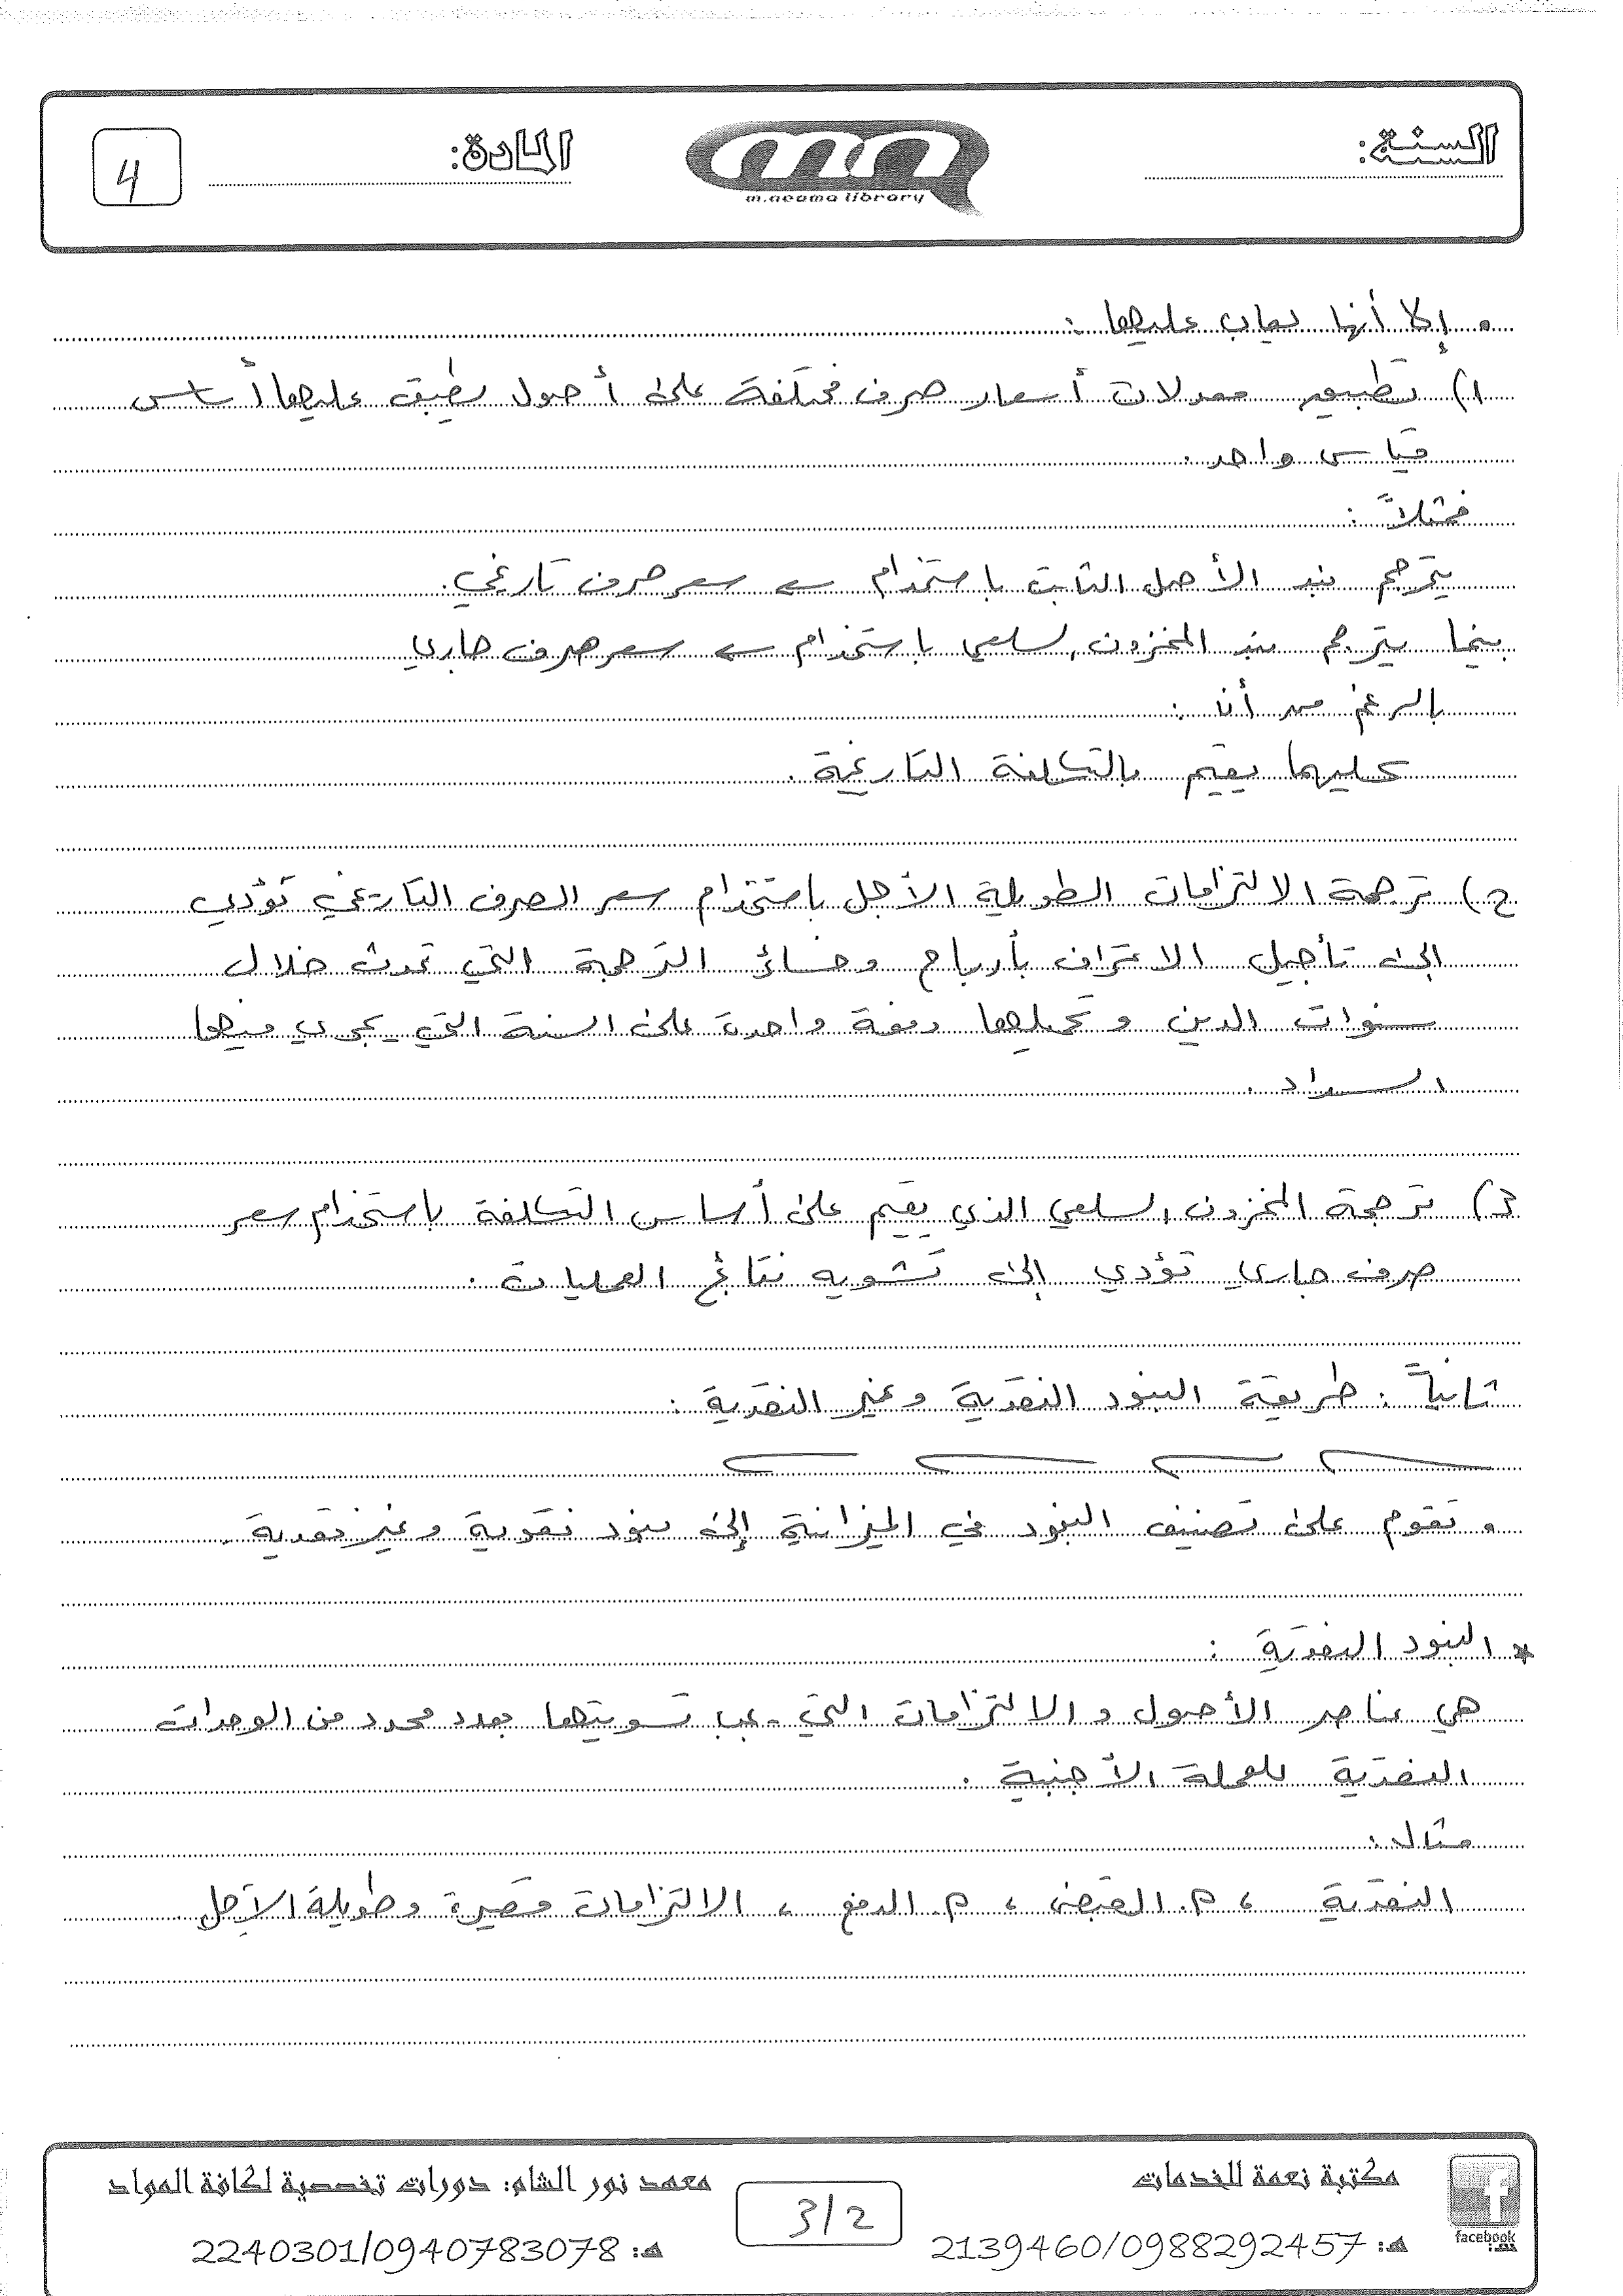 السنة:
المادة:
4
m.neama library
• إلا أنها يعاب عليها :
1) تطبيق معدلات أسعار صرف مختلفة على أصول يطبق عليها أساس
قياس واحد .
فمثلاً :
يترجم بند الأصل الثابت باستخدام ← سعر صرف تاريخي .
بينما يترجم بند المخزون السلعي باستخدام ← سعر صرف جاري
بالرغم من أن :
كليهما يقيّم بالتكلفة التاريخية .
2) ترجمة الالتزامات الطويلة الأجل باستخدام سعر الصرف التاريخي تؤدي
إلى تأجيل الاعتراف بأرباح وخسائر الترجمة التي تحدث خلال
سنوات الدين و تحميلها دفعة واحدة على السنة التي يجري فيها
السداد .
3) ترجمة المخزون السلعي الذي يقيّم على أساس التكلفة باستخدام سعر
صرف جاري تؤدي إلى تشويه نتائج العمليات .
ثانياً : طريقة البنود النقدية وغير النقدية :
• تقوم على تصنيف البنود في الميزانية إلى بنود نقدية وغير نقدية .
* البنود النقدية :
هي عناصر الأصول و الالتزامات التي يجب تسويتها بعدد محدد من الوحدات
النقدية للعملة الأجنبية .
مثال :
النقدية ، م. القبض ، م. الدفع ، الالتزامات قصيرة وطويلة الأجل
مكتبة نعمة للخدمات
هـ: 2139460/0988292457
facebook
3/2
معهد نور الشام: دورات تخصصية لكافة المواد
هـ: 2240301/0940783078